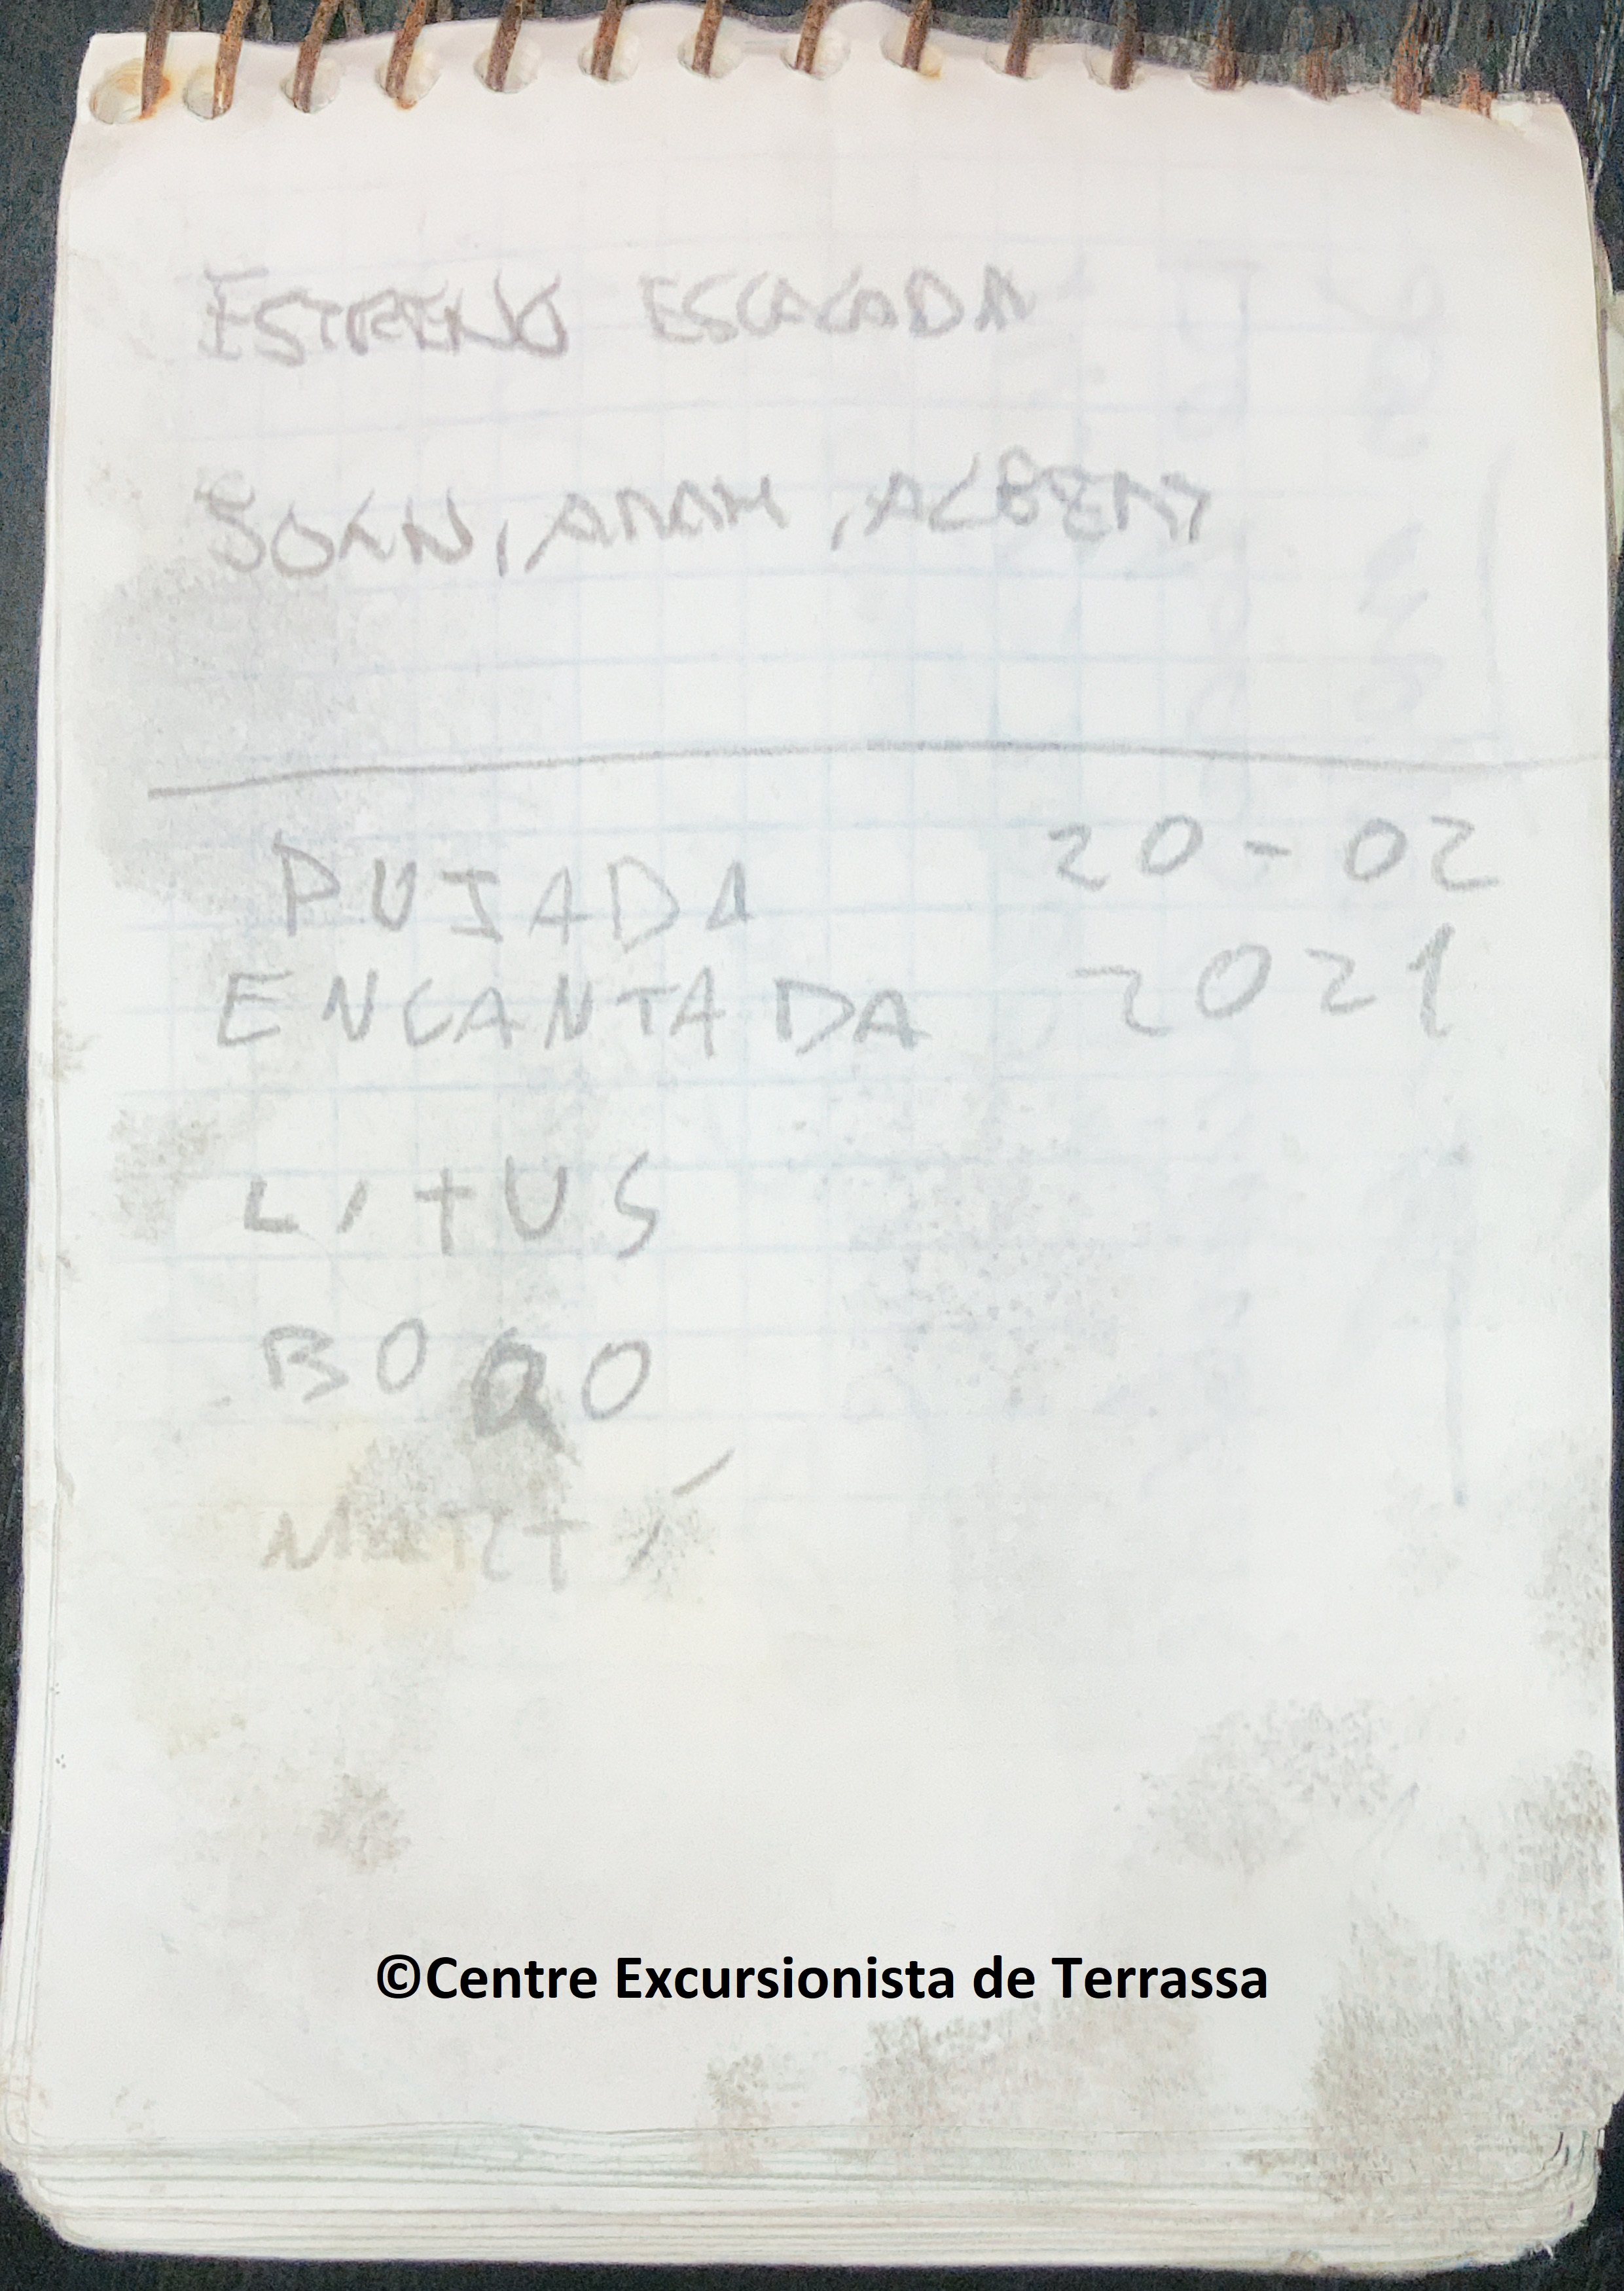 ESTRENO ESCALADA
, ADAM, ALBERT
PUJADA 20-02
ENCANTADA 2021
LITUS
BOQO
MARTÍ
©Centre Excursionista de Terrassa